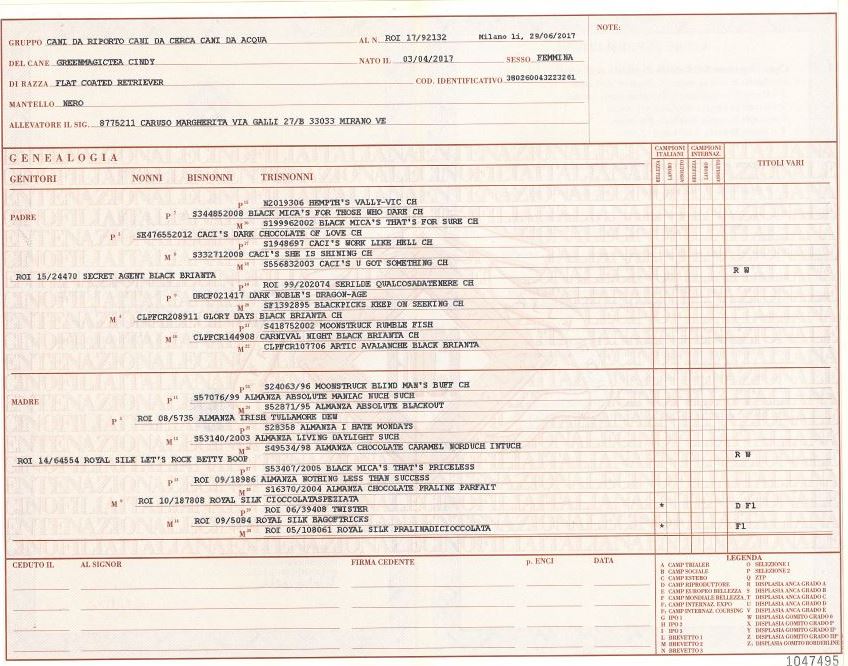 GRUPPO CANI DA RIPORTO CANI DA CERCA CANI DA ACQUA AL N. ROI 17/92132 Milano li, 29/06/2017
NOTE:
DEL CANE GREENMAGICTEA CINDY NATO IL 03/04/2017 SESSO FEMMINA
DI RAZZA FLAT COATED RETRIEVER COD. IDENTIFICATIVO 380260043223261
MANTELLO NERO
ALLEVATORE IL SIG. 8775211 CARUSO MARGHERITA VIA GALLI 27/B 33033 MIRANO VE
GENEALOGIA
CAMPIONI ITALIANI CAMPIONI INTERNAZ.
BELLEZZA LAVORO ASSOLUTO BELLEZZA LAVORO ASSOLUTO
TITOLI VARI
GENITORI NONNI BISNONNI TRISNONNI
P N2019306 HEMPTH'S VALLY-VIC CH
PADRE P 7 S344852008 BLACK MICA'S FOR THOSE WHO DARE CH
M S199962002 BLACK MICA'S THAT'S FOR SURE CH
P SE476552012 CACI'S DARK CHOCOLATE OF LOVE CH
P S1948697 CACI'S WORK LIKE HELL CH
M S332712008 CACI'S SHE IS SHINING CH
M S556832003 CACI'S U GOT SOMETHING CH
ROI 15/24470 SECRET AGENT BLACK BRIANTA R W
P ROI 99/202074 SERILDE QUALCOSADATENERE CH
P DRCF021417 DARK NOBLE'S DRAGON-AGE
M SF1392895 BLACKPICKS KEEP ON SEEKING CH
M CLPFCR208911 GLORY DAYS BLACK BRIANTA CH
P S418752002 MOONSTRUCK RUMBLE FISH
M CLPFCR144908 CARNIVAL NIGHT BLACK BRIANTA CH
M CLPFCR107706 ARTIC AVALANCHE BLACK BRIANTA
P S24063/96 MOONSTRUCK BLIND MAN'S BUFF CH
MADRE P S57076/99 ALMANZA ABSOLUTE MANIAC NUCH SUCH
M S52871/95 ALMANZA ABSOLUTE BLACKOUT
P ROI 08/5735 ALMANZA IRISH TULLAMORE DEW
P S28358 ALMANZA I HATE MONDAYS
M S53140/2003 ALMANZA LIVING DAYLIGHT SUCH
M S49534/98 ALMANZA CHOCOLATE CARAMEL NORDUCH INTUCH
ROI 14/64554 ROYAL SILK LET'S ROCK BETTY BOOP R W
P S53407/2005 BLACK MICA'S THAT'S PRICELESS
P ROI 09/18986 ALMANZA NOTHING LESS THAN SUCCESS
M S16370/2004 ALMANZA CHOCOLATE PRALINE PARFAIT
M ROI 10/187808 ROYAL SILK CIOCCOLATASPEZIATA
P ROI 06/39408 TWISTER * D F1
M ROI 09/5084 ROYAL SILK BAGOFTRICKS
M ROI 05/108061 ROYAL SILK PRALINADICIOCCOLATA * F1
CEDUTO IL AL SIGNOR FIRMA CEDENTE p. ENCI DATA
LEGENDA
A CAMP TRIALER O SELEZIONE 1
B CAMP SOCIALE P SELEZIONE 2
C CAMP ESTERO Q ZTP
D CAMP RIPRODUTTORE R DISPLASIA ANCA GRADO A
E CAMP EUROPEO BELLEZZA S DISPLASIA ANCA GRADO B
F CAMP MONDIALE BELLEZZA T DISPLASIA ANCA GRADO C
F1 CAMP INTERNAZ. EXPO U DISPLASIA ANCA GRADO D
CAMP INTERNAZ. COURSING V DISPLASIA ANCA GRADO E
G IPO 1 W DISPLASIA GOMITO GRADO 0
H IPO 2 X DISPLASIA GOMITO GRADO
I IPO 3 Y DISPLASIA GOMITO GRADO
L BREVETTO 1 Z DISPLASIA GOMITO GRADO
M BREVETTO 2 DISPLASIA GOMITO BORDERLINE
N BREVETTO 3
1047495